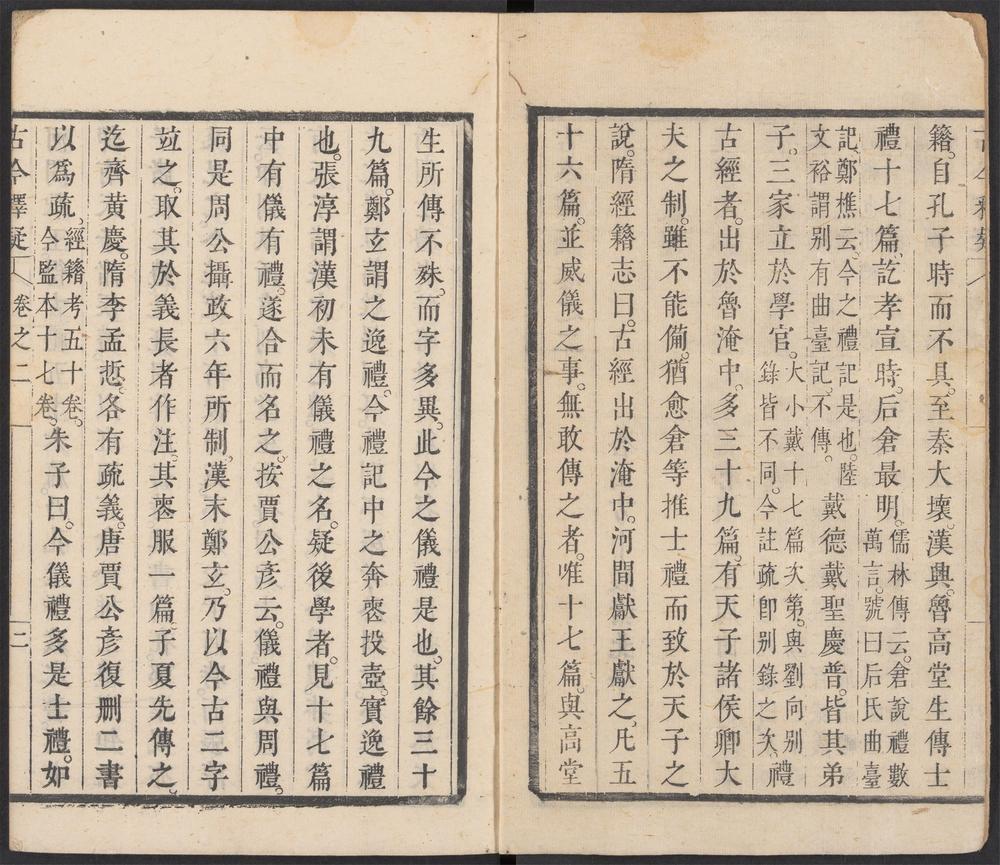 籍。自孔子時而不具。至秦大壞。漢興。魯高堂生傳士
禮十七篇。訖孝宣時。后倉最明。儒林傳云。倉說禮數
萬言。號曰后氏曲臺
記。鄭樵云。今之禮記是也。陸
文裕謂别有曲臺記。不傳。戴德戴聖慶普。皆其弟
子。三家立於學官。大小戴十七篇次第。與劉向别
錄皆不同。今註疏卽别錄之次。禮
古經者。出於魯淹中。多三十九篇。有天子諸侯卿大
夫之制。雖不能備。猶愈倉等推士禮而致於天子之
說。隋經籍志曰。古經出於淹中。河間獻王獻之。凡五
十六篇。並威儀之事。無敢傳之者。唯十七篇。與高堂
生所傳不殊。而字多異。此今之儀禮是也。其餘三十
九篇。鄭玄謂之逸禮。今禮記中之奔喪投壺。實逸禮
也。張淳謂漢初未有儀禮之名。疑後學者。見十七篇
中有儀有禮。遂合而名之。按賈公彥云。儀禮與周禮。
同是周公攝政六年所制。漢末鄭玄。乃以今古二字
竝之。取其於義長者作注。其喪服一篇。子夏先傳之。
迄齊黃慶。隋李孟悊。各有疏義。唐賈公彥復刪二書
以爲疏。經籍考五十卷。
今監本十七卷。朱子曰。今儀禮多是士禮。如
古今釋疑 卷之二 二